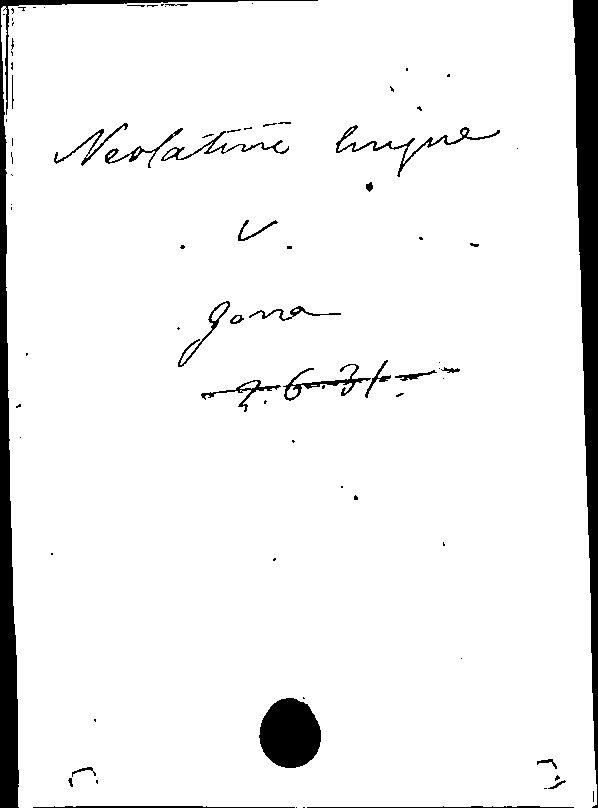 Neolatine lingue
v.
Gorra
2.6.31.